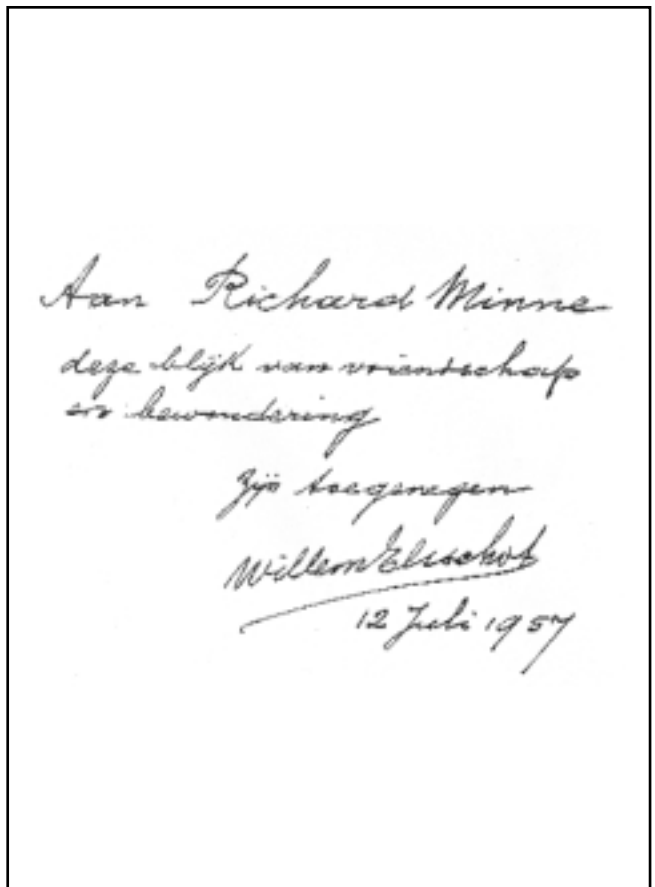 Aan Richard Minne
deze blijk van vriendschap
en bewondering
Zijn toegenegen
Willem Elsschot
12 Juli 1957